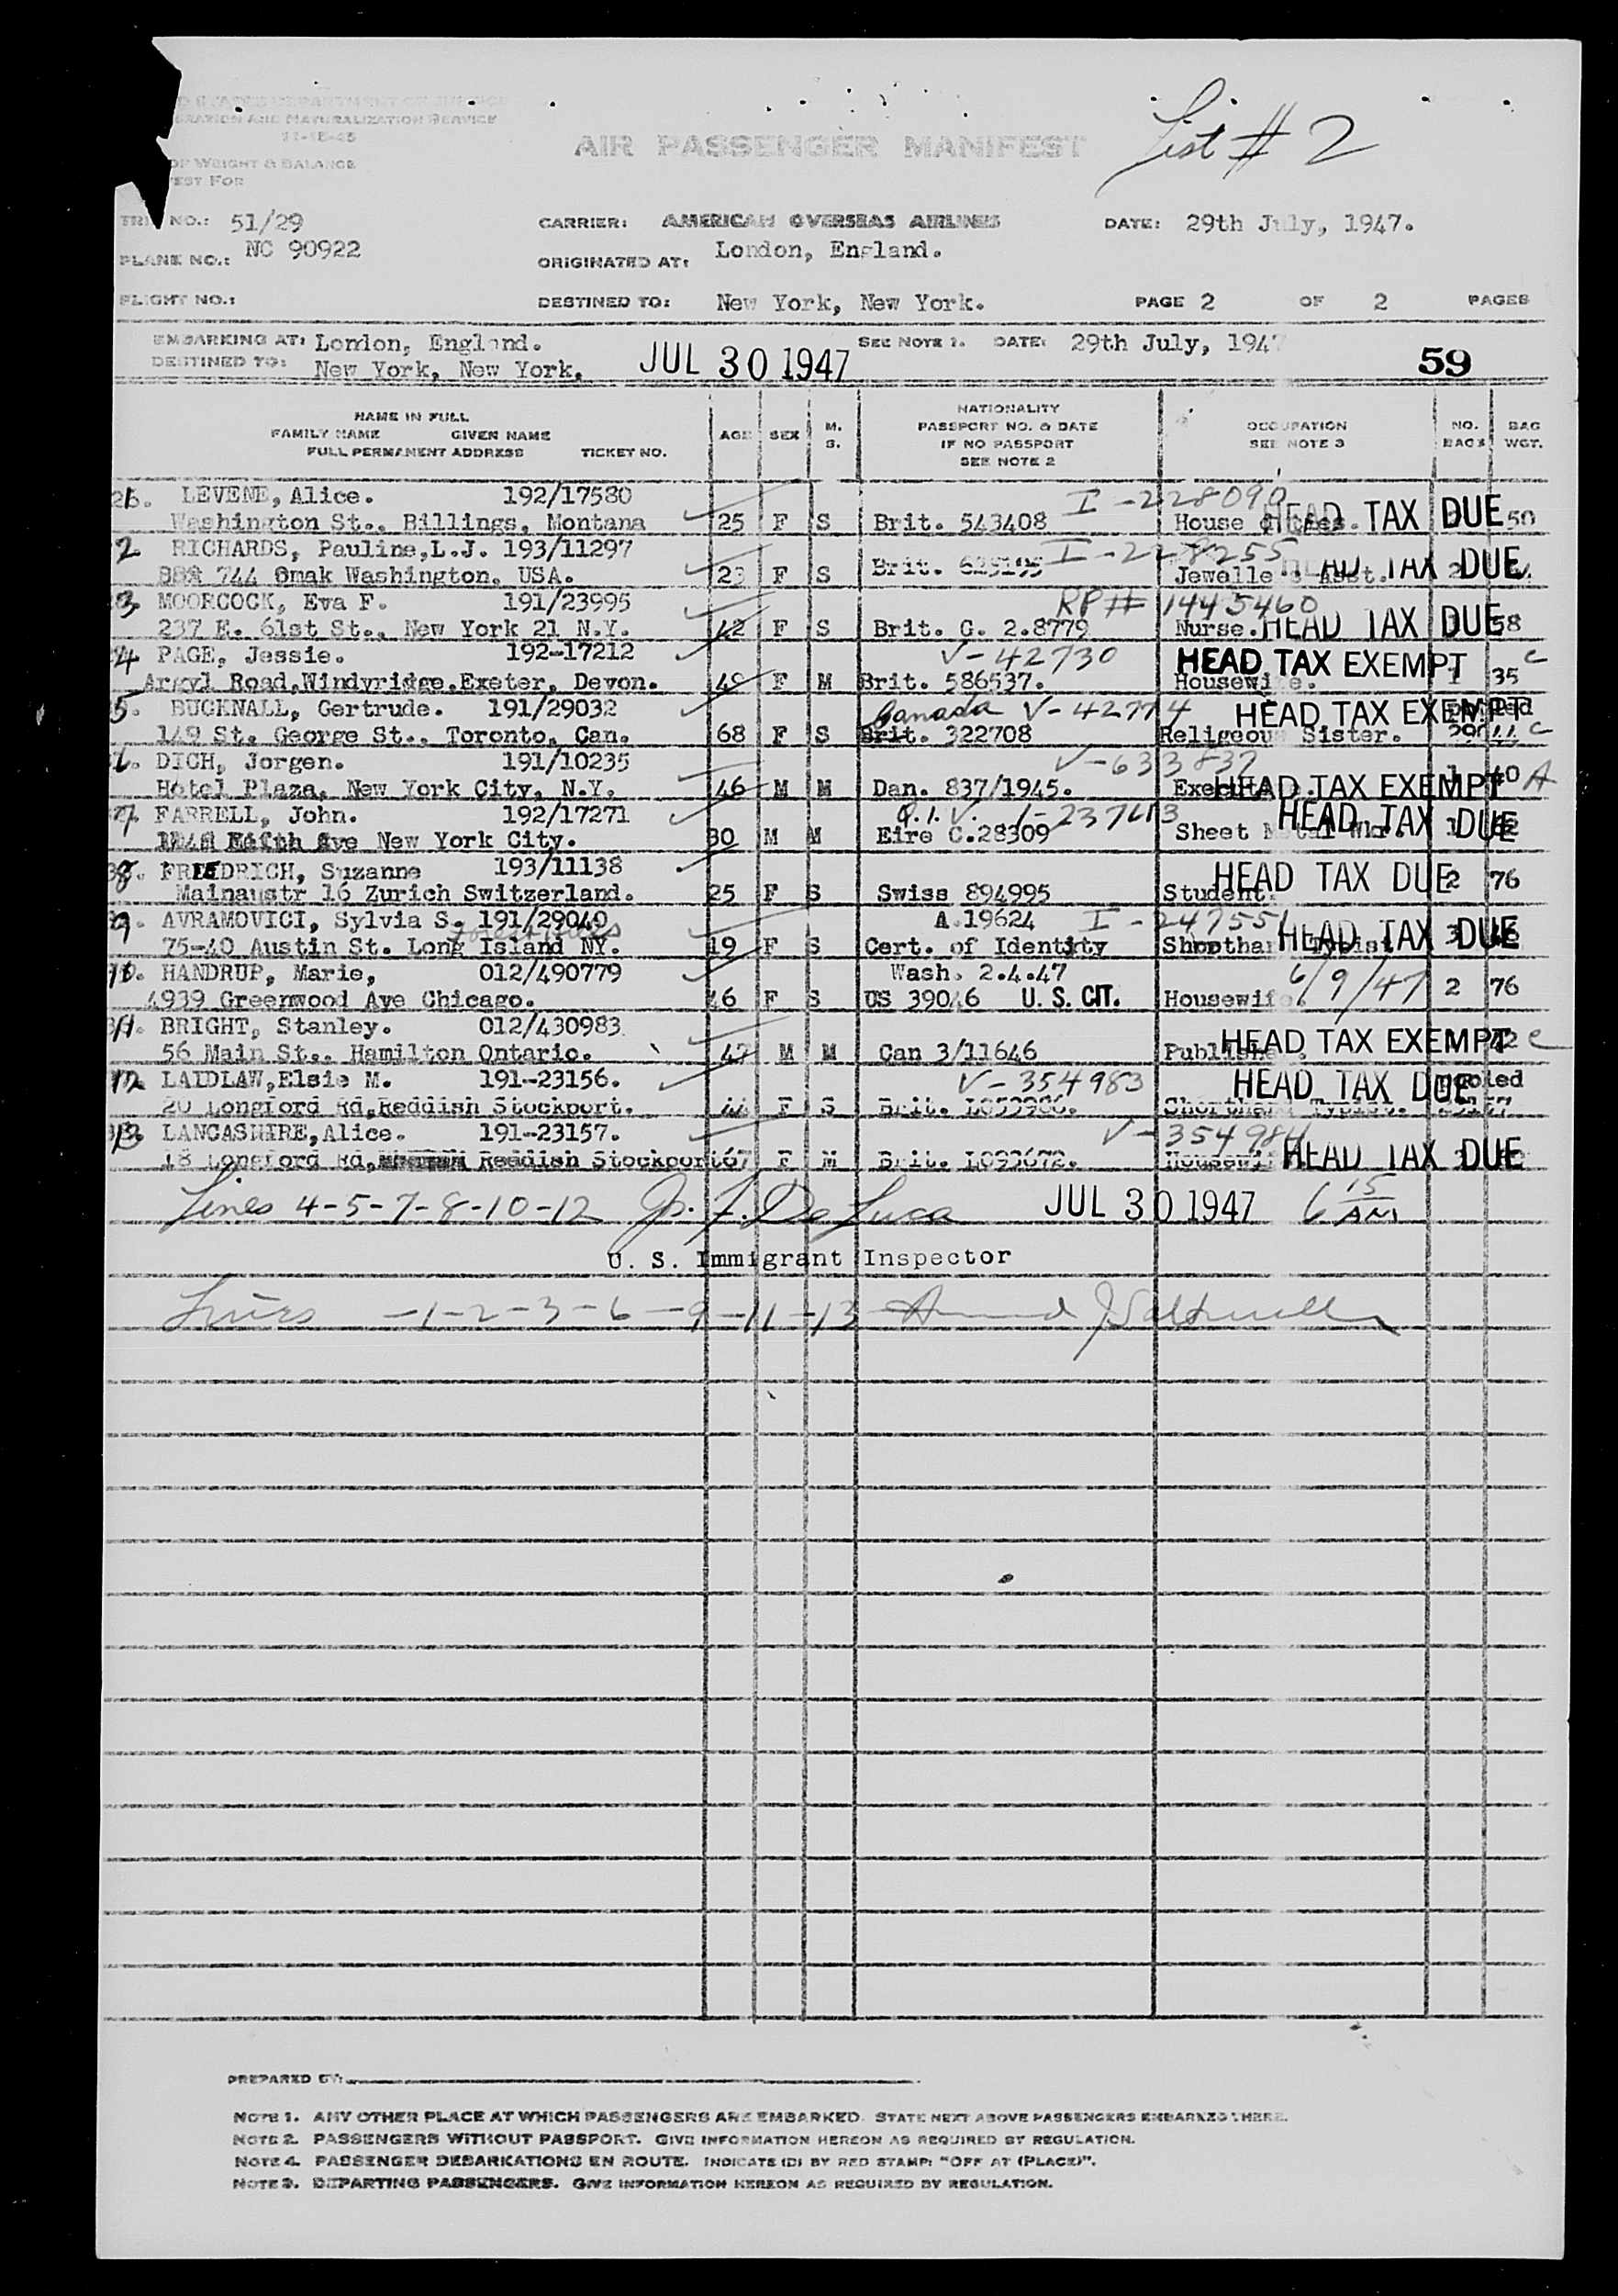 D STATES DEPARTMENT OF JUSTICE
GRATION AND NATURALIZATION SERVICE
11-15-45
AIR PASSENGER MANIFEST List # 2
OF WEIGHT & BALANCE
EST FOR
TRI NO.: 51/29 CARRIER: AMERICAN OVERSEAS AIRLINES DATE: 29th July, 1947.
PLANE NO.: NC 90922 ORIGINATED AT: London, England.
FLIGHT NO.: DESTINED TO: New York, New York. PAGE 2 OF 2 PAGES
EMBARKING AT: London, England. SEE NOTE 1. DATE: 29th July, 1947
DESTINED TO: New York, New York, JUL 30 1947 59
NAME IN FULL
FAMILY NAME GIVEN NAME
FULL PERMANENT ADDRESS TICKET NO.
AGE SEX M. S.
NATIONALITY
PASSPORT NO. & DATE
IF NO PASSPORT
SEE NOTE 2
OCCUPATION
SEE NOTE 3
NO. BAGS
BAG WGT.
LEVENE, Alice. 192/17580 I-228090
Washington St., Billings, Montana 25 F S Brit. 543408 House HEAD TAX DUE 50
2 RICHARDS, Pauline,L.J. 193/11297 I-228255
744 Omak Washington. USA. 23 F S Brit. Jewelle s Asst. HEAD TAX DUE
3 MOORCOCK, Eva F. 191/23995 RP# 1445460
237 E. 61st St., New York 21 N.Y. 42 F S Brit. C. 2.8779 Nurse. HEAD TAX DUE 58
4 PAGE, Jessie. 192-17212 V-42730 HEAD TAX EXEMPT C
Argyl Road,Windyridge,Exeter, Devon. 49 F M Brit. 586537. Housewife. 1 35
5. BUCKNALL, Gertrude. 191/29032 Canada V-42774 HEAD TAX EXEMPT
149 St. George St., Toronto, Can. 68 F S Brit. 322708 Religeous Sister. 29044 C
6. DICH, Jorgen. 191/10235 V-633837
Hotel Plaza, New York City, N.Y. 46 M M Dan. 837/1945. HEAD TAX EXEMPT 40 A
7. FARRELL, John. 192/17271 Q.I.V. I-237613 HEAD TAX DUE
Ave New York City. 30 M M Eire C.28309 Sheet Metal Wkr. 1
8. FRIEDRICH, Suzanne 193/11138 HEAD TAX DUE
Mainaustr 16 Zurich Switzerland. 25 F S Swiss 894995 Student. 2 76
9. AVRAMOVICI, Sylvia S. 191/29040 A.19624 I-247551
75-40 Austin St. Long Island NY. 19 F S Cert. of Identity Shorthan Typist HEAD TAX DUE
10. HANDRUP, Marie, 012/490779 Wash. 2.4.47 6/9/47
4939 Greenwood Ave Chicago. 46 F S US 39046 U. S. CIT. Housewife 2 76
11. BRIGHT, Stanley. 012/430983 HEAD TAX EXEMPT
56 Main St., Hamilton Ontario. 47 M M Can 3/11646 Publishe 1 C
12 LAIDLAW,Elsie M. 191-23156. V-354983 HEAD TAX DUE
20 Longford Rd,Reddish Stockport. 44 F S Brit. L053986. Shorthand Typist. 23157
13 LANCASHIRE,Alice. 191-23157. V-354984
18 Longford Rd, Reddish Stockport 67 F M Brit. L093672. Housewi HEAD TAX DUE
Lines 4-5-7-8-10-12 Jos. F. De Luca JUL 30 1947 6 15 AM
U. S. Immigrant Inspector
Lines -1-2-3-6-9-11-13
PREPARED BY:
NOTE 1. ANY OTHER PLACE AT WHICH PASSENGERS ARE EMBARKED. STATE NEXT ABOVE PASSENGERS EMBARKED THERE.
NOTE 2. PASSENGERS WITHOUT PASSPORT. GIVE INFORMATION HEREON AS REQUIRED BY REGULATION.
NOTE 4. PASSENGER DEBARKATIONS EN ROUTE. INDICATE (D) BY RED STAMP: "OFF AT (PLACE)".
NOTE 3. DEPARTING PASSENGERS. GIVE INFORMATION HEREON AS REQUIRED BY REGULATION.